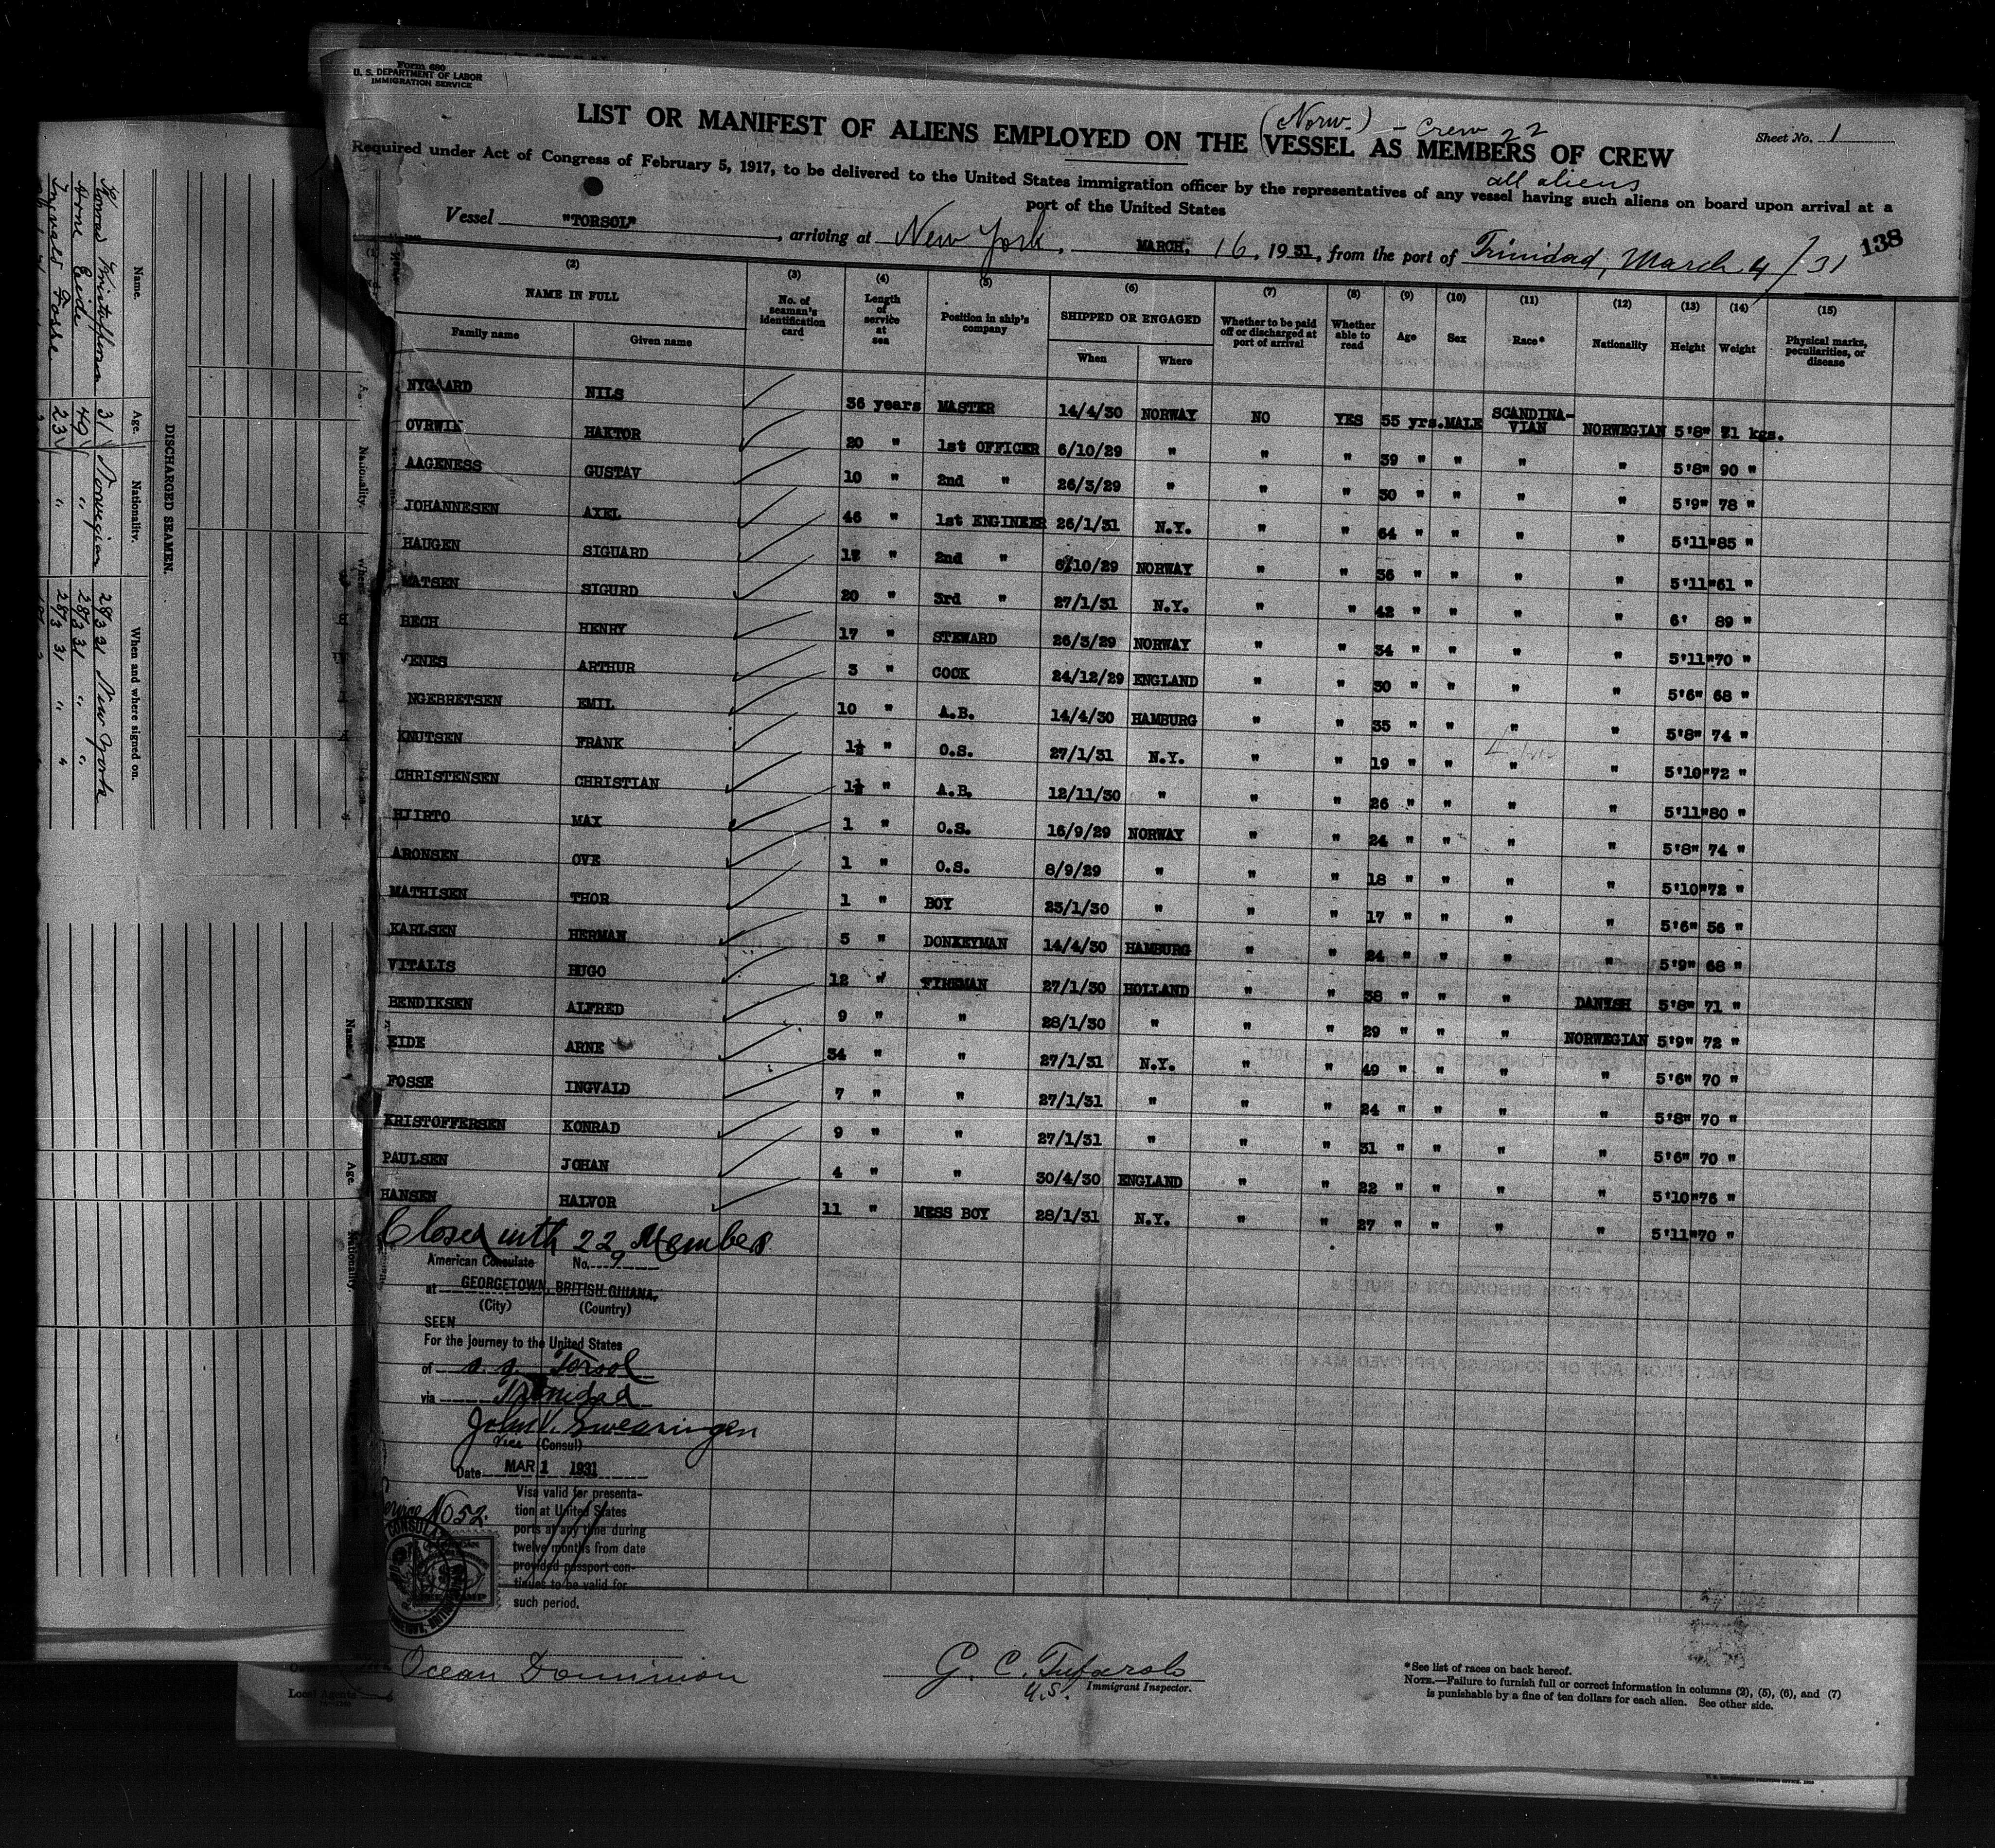 Form 680
U. S. DEPARTMENT OF LABOR
IMMIGRATION SERVICE
(Norw.) - Crew 22
all aliens
Sheet No. 1
LIST OR MANIFEST OF ALIENS EMPLOYED ON THE VESSEL AS MEMBERS OF CREW
Required under Act of Congress of February 5, 1917, to be delivered to the United States immigration officer by the representatives of any vessel having such aliens on board upon arrival at a
port of the United States
Vessel "TORSOL", arriving at New York, MARCH, 16, 1931, from the port of Trinidad, March 4/31
138
(2) (3) (4) (5) (6) (7) (8) (9) (10) (11) (12) (13) (14) (15)
NAME IN FULL
Family name Given name
No. of seaman's identification card
Length of service at sea
Position in ship's company
SHIPPED OR ENGAGED
When Where
Whether to be paid off or discharged at port of arrival
Whether able to read
Age Sex Race* Nationality Height Weight
Physical marks, peculiarities, or disease
NYGAARD NILS 36 years MASTER 14/4/30 NORWAY NO YES 55 yrs. MALE SCANDINAVIAN NORWEGIAN 5'8" 71 kgs.
OVRWIK HAKTOR 20 " 1st OFFICER 6/10/29 " " " 39 " " " " 5'8" 90 "
AAGENESS GUSTAV 10 " 2nd " 26/3/29 " " " 30 " " " " 5'9" 78 "
JOHANNESEN AXEL 46 " 1st ENGINEER 26/1/31 N.Y. " " 64 " " " " 5'11" 85 "
HAUGEN SIGUARD " 2nd " 6/10/29 NORWAY " " 36 " " " " 5'11" 61 "
MATSEN SIGURD 20 " 3rd " 27/1/31 N.Y. " " 42 " " " " 6' 89 "
BECH HENRY 17 " STEWARD 26/3/29 NORWAY " " 34 " " " " 5'11" 70 "
JENES ARTHUR 3 " COCK 24/12/29 ENGLAND " " 30 " " " " 5'6" 68 "
NGEBRETSEN EMIL 10 " A.B. 14/4/30 HAMBURG " " 35 " " " " 5'8" 74 "
KNUTSEN FRANK 1½ " O.S. 27/1/31 N.Y. " " 19 " " " " 5'10" 72 "
CHRISTENSEN CHRISTIAN 1½ " A.B. 12/11/30 " " " 26 " " " " 5'11" 80 "
HJIRTO MAX 1 " O.S. 16/9/29 NORWAY " " 24 " " " " 5'8" 74 "
ARONSEN OVE 1 " O.S. 8/9/29 " " " 18 " " " " 5'10" 72 "
MATHISEN THOR 1 " BOY 23/1/30 " " " 17 " " " " 5'6" 56 "
KARLSEN HERMAN 5 " DONKEYMAN 14/4/30 HAMBURG " " 24 " " " " 5'9" 68 "
VITALIS HUGO 12 " FYREMAN 27/1/30 HOLLAND " " 38 " " " DANISH 5'8" 71 "
BENDIKSEN ALFRED 9 " " 28/1/30 " " " 29 " " " NORWEGIAN 5'9" 72 "
EIDE ARNE 34 " " 27/1/31 N.Y. " " 49 " " " " 5'6" 70 "
FOSSE INGVALD 7 " " 27/1/31 " " " 24 " " " " 5'8" 70 "
KRISTOFFERSEN KONRAD 9 " " 27/1/31 " " " 31 " " " " 5'6" 70 "
PAULSEN JOHAN 4 " " 30/4/30 ENGLAND " " 22 " " " " 5'10" 76 "
HANSEN HALVOR 11 " MESS BOY 28/1/31 N.Y. " " 27 " " " " 5'11" 70 "
Closed with 22 Members
American Consulate No. 9
at GEORGETOWN, BRITISH GUIANA,
(City) (Country)
SEEN
For the journey to the United States
of s.s. Torsol
via Trinidad
John V. Swearingen
Vice (Consul)
Date MAR 1 1931
Service No 52.
Visa valid for presenta-
tion at United States
ports at any time during
twelve months from date
provided passport con-
tinues to be valid for
such period.
Ocean Dominion
G. C. Tufarolo
U.S. Immigrant Inspector.
*See list of races on back hereof.
NOTE.—Failure to furnish full or correct information in columns (2), (5), (6), and (7)
is punishable by a fine of ten dollars for each alien. See other side.
Local Agents
DISCHARGED SEAMEN.
Name. Age. Nationality. When and where signed on.
Konrad Kristoffersen 31 Norwegian 28/3 31 New York
Arne Eide 49 " 28/3 31 " "
Ingvald Fosse 23 " 28/3 31 " "
Name Age. Nationality.